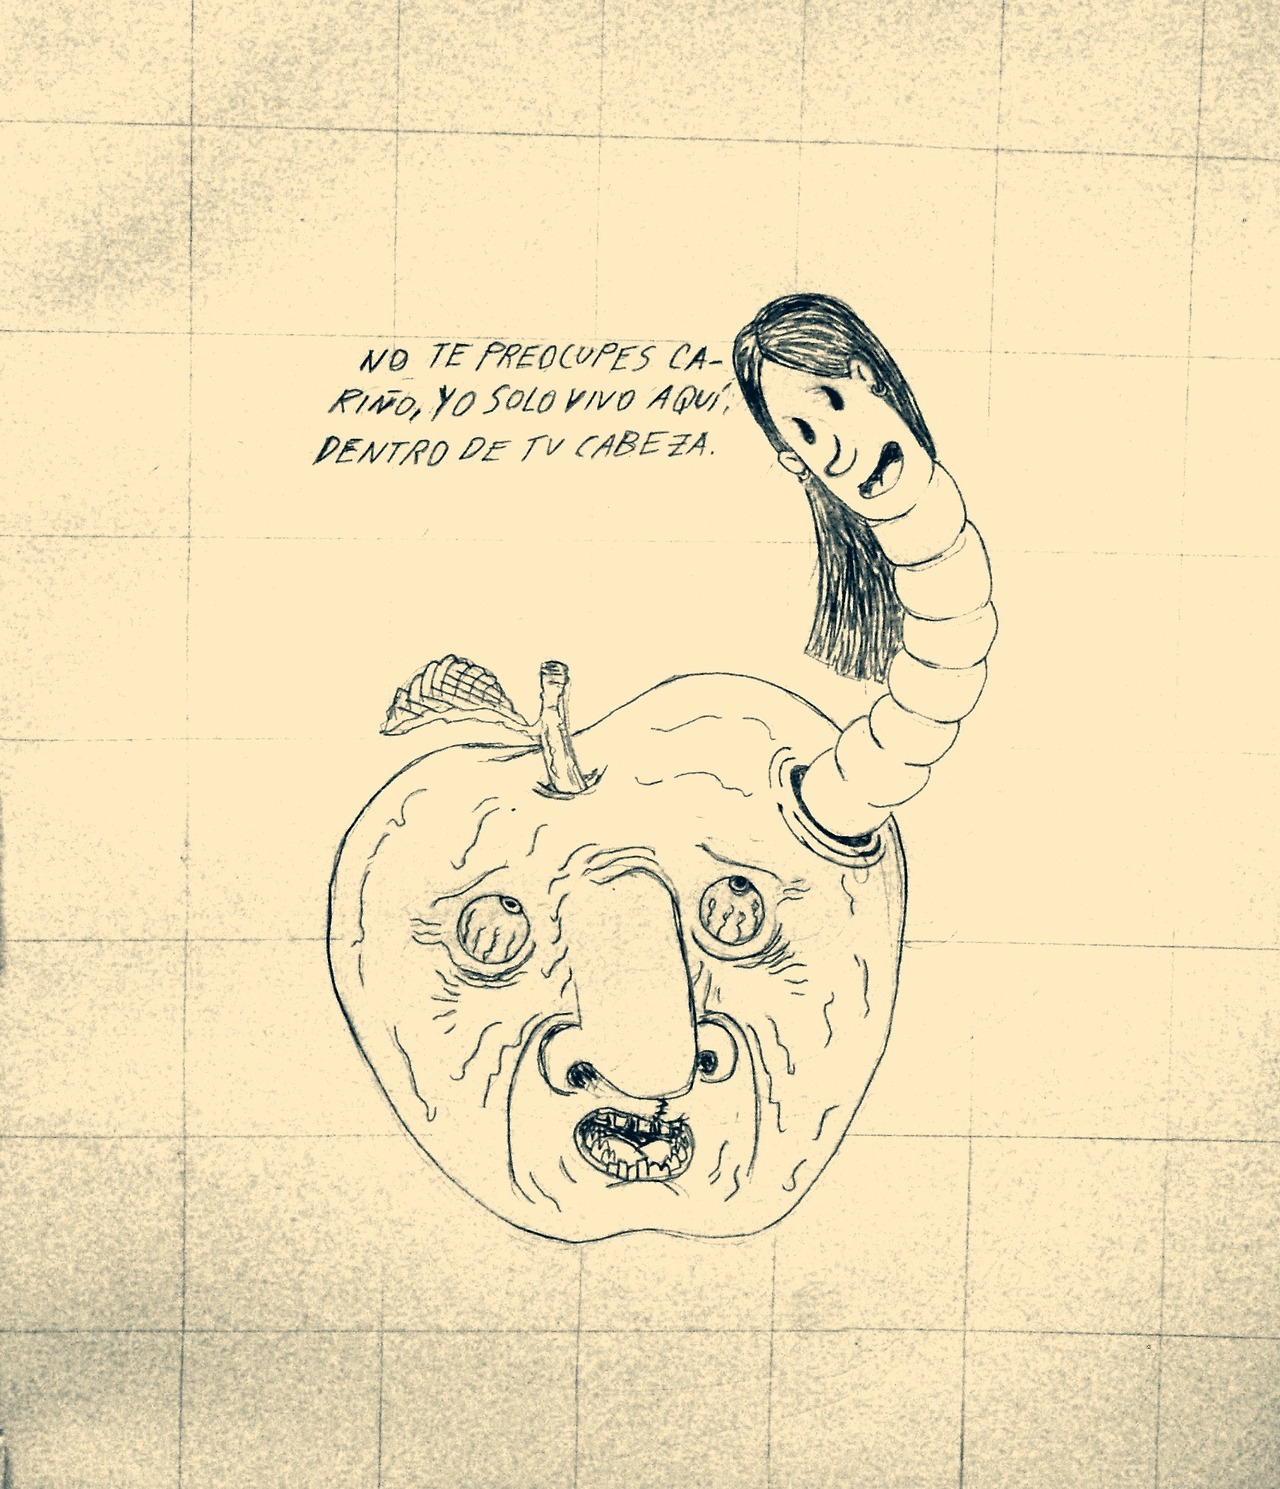 NO TE PREOCUPES CA-
RIÑO, YO SOLO VIVO AQUÍ,
DENTRO DE TU CABEZA.